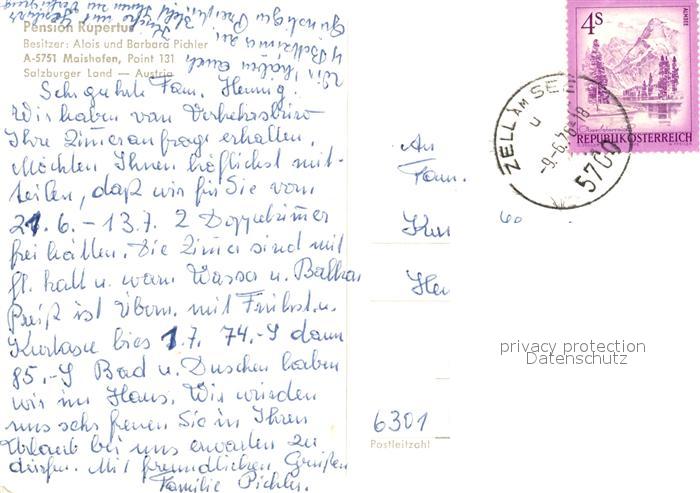 Pension Rupertus
Besitzer: Alois und Barbara Pichler
A-5751 Maishofen, Point 131
Salzburger Land — Austria
Wir haben auch
4 Bettzimer zu
günstigen Preisen.
Sehr geehrte Fam. Hennig.
Wir haben von Verkehrsbüro
Ihre Zimeranfrage erhalten.
Möchten Ihnen höflichst mit-
teilen, daß wir für Sie vom
21.6. - 13.7. 2 Doppelzimer
frei hätten. Die Zimer sind mit
fl. kalt u. warm Wasser u. Balkon
Preiß ist Übern. mit Frühst. u.
Kurtaxe bies 1.7. 74.-S dann
85.-S Bad u. Duschen haben
wir im Haus. Wir würden
uns sehr freuen Sie in Ihren
Urlaub bei uns erwarten zu
dürfen. Mit freundlichen Grüßen
Familie Pichler.
4S
ALMSEE
REPUBLIK ÖSTERREICH
ZELL AM SEE
u
-9.-6.76-18
5700
An
Fam.
6301
Postleitzahl
privacy protection
Datenschutz